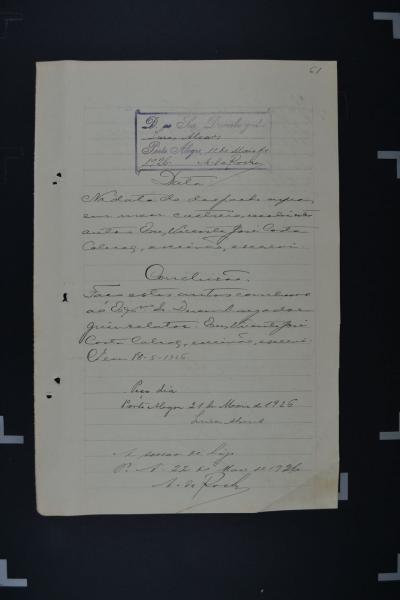 61
D. ao Snr. Desembgdr.
Luiz Alves
Porto Alegre, 11 de Maio de
1926. A. da Rocha
Data
Na data do despacho supra,
em meu cartorio, recebi estes
autos. Eu, Vicente José Costa
Cabral, escrivão, escrevi.
Conclusão.
Faço estes autos conclusos
ao Exmo. Sr. Desembargador
relator. Eu, Vicente José
Costa Cabral, escrivão, escrevi.
Em 18-5-1926
Peço dia
Porto Alegre 21 de Maio de 1926
A sessão de hoje
P. A. 22 de Maio de 1926
A. da Rocha